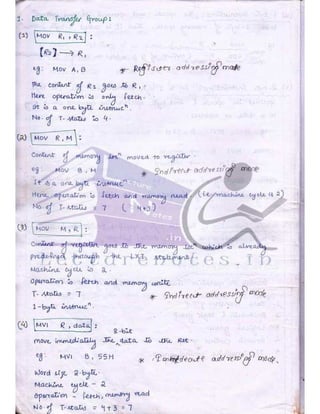 1. Data Transfer Group:
(1) MOV R1, R2 :
[R2] → R1
eg: MOV A, B * Register addressing mode
The content of R2 goes to R1.
Here operation is only fetch.
It is a one byte instrucⁿ.
No. of T-states is 4.
(2) MOV R, M :
Content of memory locⁿ moved to register.
eg MOV B, M * Indirect addressing mode
It is a one byte instrucⁿ
Here, operation is fetch and memory read. (i.e. machine cycle is 2)
No of T-states = 7 (4+3)
(3) MOV M, R :
Content of register goes to the memory locⁿ which is already
predefined through the LXI statement
Machine cycle is 2.
Operation is fetch and memory write
T-states = 7 * Indirect addressing mode
1-byte instrucⁿ.
(4) MVI R, data :
8-bit
move immediately the data to the
eg: MVI B, 55H * addressing mode.
Word size 2-byte.
Machine cycle - 2
Operation - fetch, memory read
No of T-states = 4+3 = 7
lecture
notes
.in